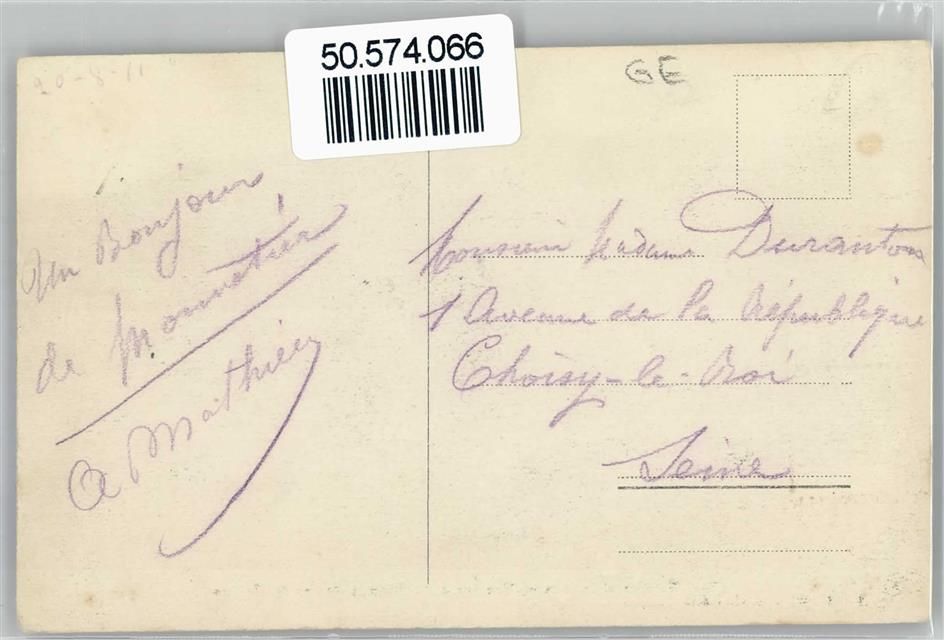 50.574.066
GE
20-8-11
Un Bonjour
de Monnetier
A Mathieu
Monsieur Madame Duranton
1 Avenue de la République
Choisy-le-Roi
Seine